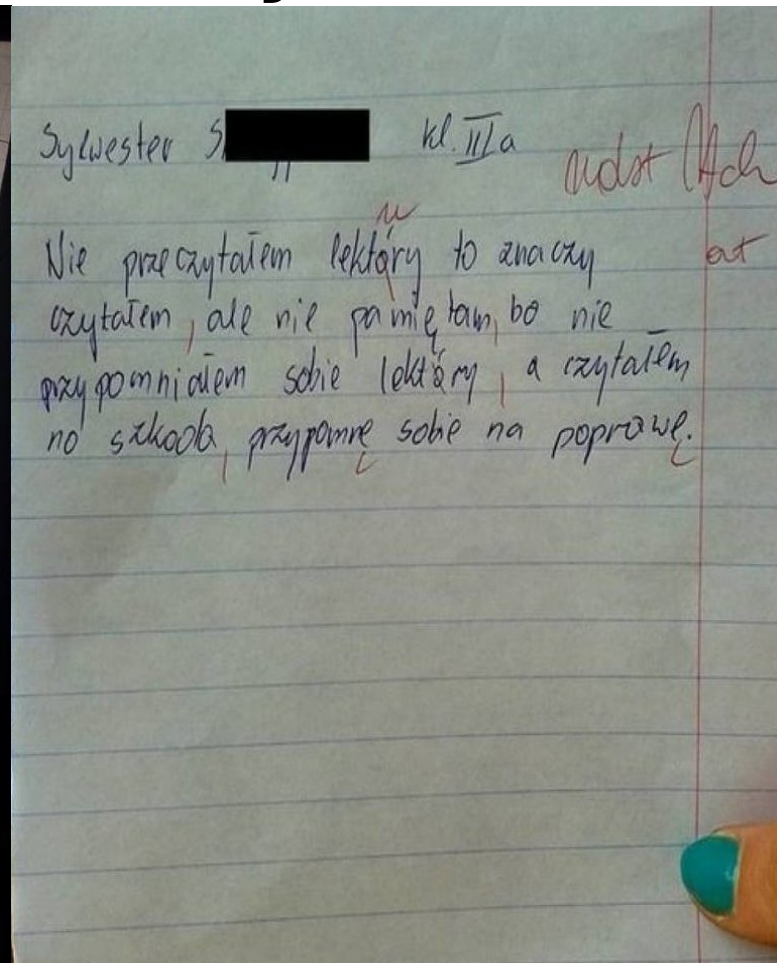 Sylwester S kl. IIIa
ndst
u
Nie przeczytałem lektóry to znaczy
czytałem, ale nie pamiętam, bo nie
przypomniałem sobie lektóry, a czytałem
no szkoda, przypomnę sobie na poprawę.